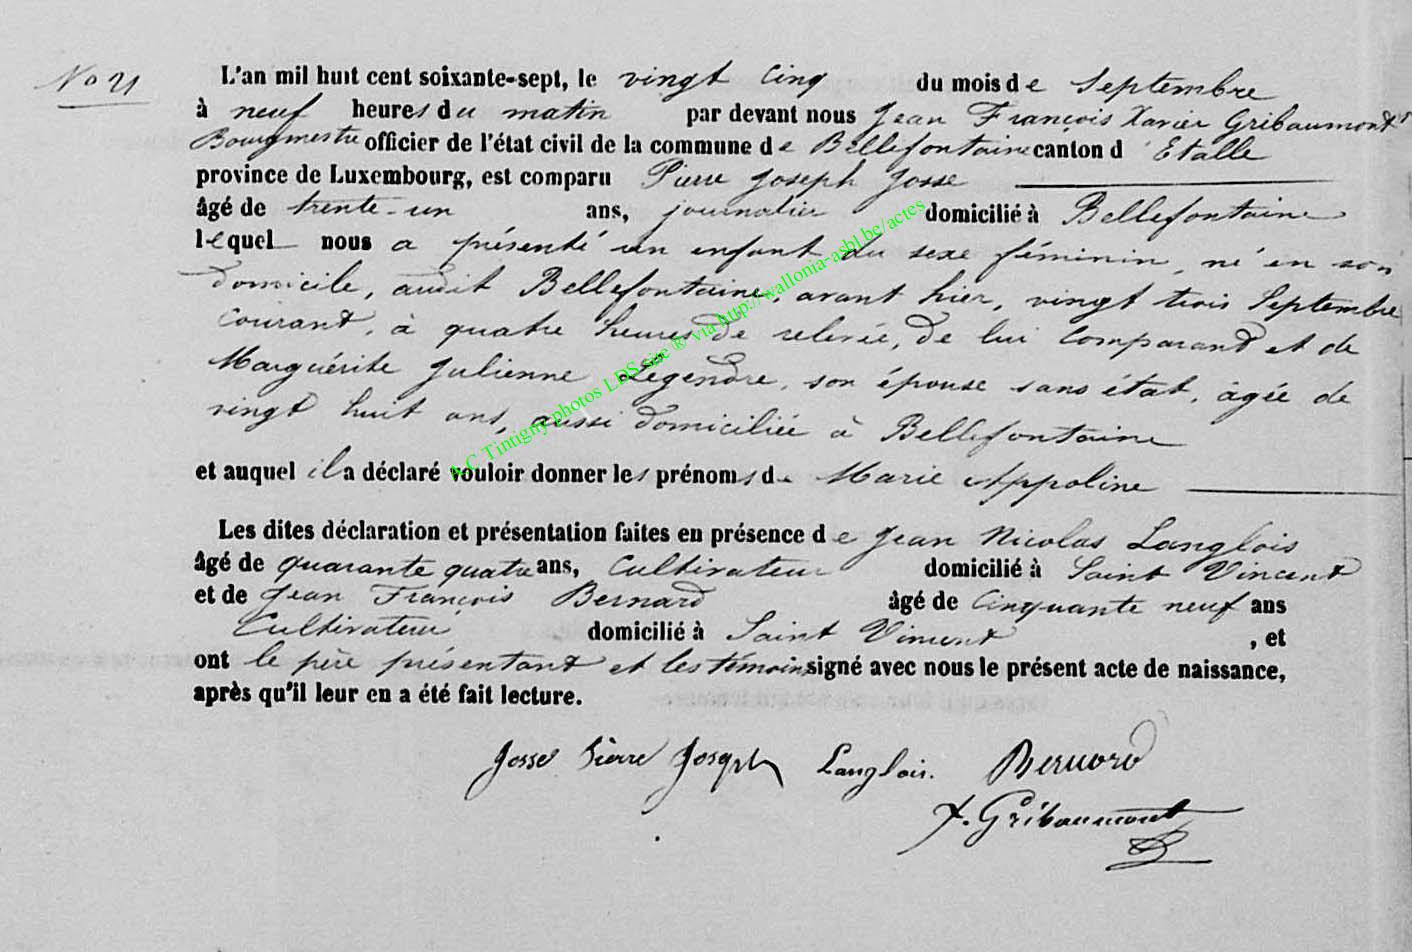 No 21
L'an mil huit cent soixante-sept, le vingt cinq du mois de Septembre
à neuf heures du matin par devant nous Jean François Xavier Gribaumont
Bourgmestre officier de l'état civil de la commune de Bellefontaine canton d'Etalle
province de Luxembourg, est comparu Pierre Joseph Josse
âgé de trente-un ans, journalier domicilié à Bellefontaine
lequel nous a présenté un enfant du sexe féminin, né en son
domicile, audit Bellefontaine, avant hier, vingt trois Septembre
courant, à quatre heures de relevée, de lui comparant et de
Marguérite Julienne Legendre, son épouse sans état, âgée de
vingt huit ans, aussi domiciliée à Bellefontaine
et auquel il a déclaré vouloir donner les prénoms de Marie Appoline
Les dites déclaration et présentation faites en présence de Jean Nicolas Langlois
âgé de quarante quatre ans, Cultivateur domicilié à Saint Vincent
et de Jean François Bernard âgé de Cinquante neuf ans
Cultivateur domicilié à Saint Vincent , et
ont le père présentant et les témoins signé avec nous le présent acte de naissance,
après qu'il leur en a été fait lecture.
Josse Pierre Joseph Langlois. Bernard
X. Gribaumont
A.C Tintigny photos LDS site ® via http://wallonia-asbl.be/actes